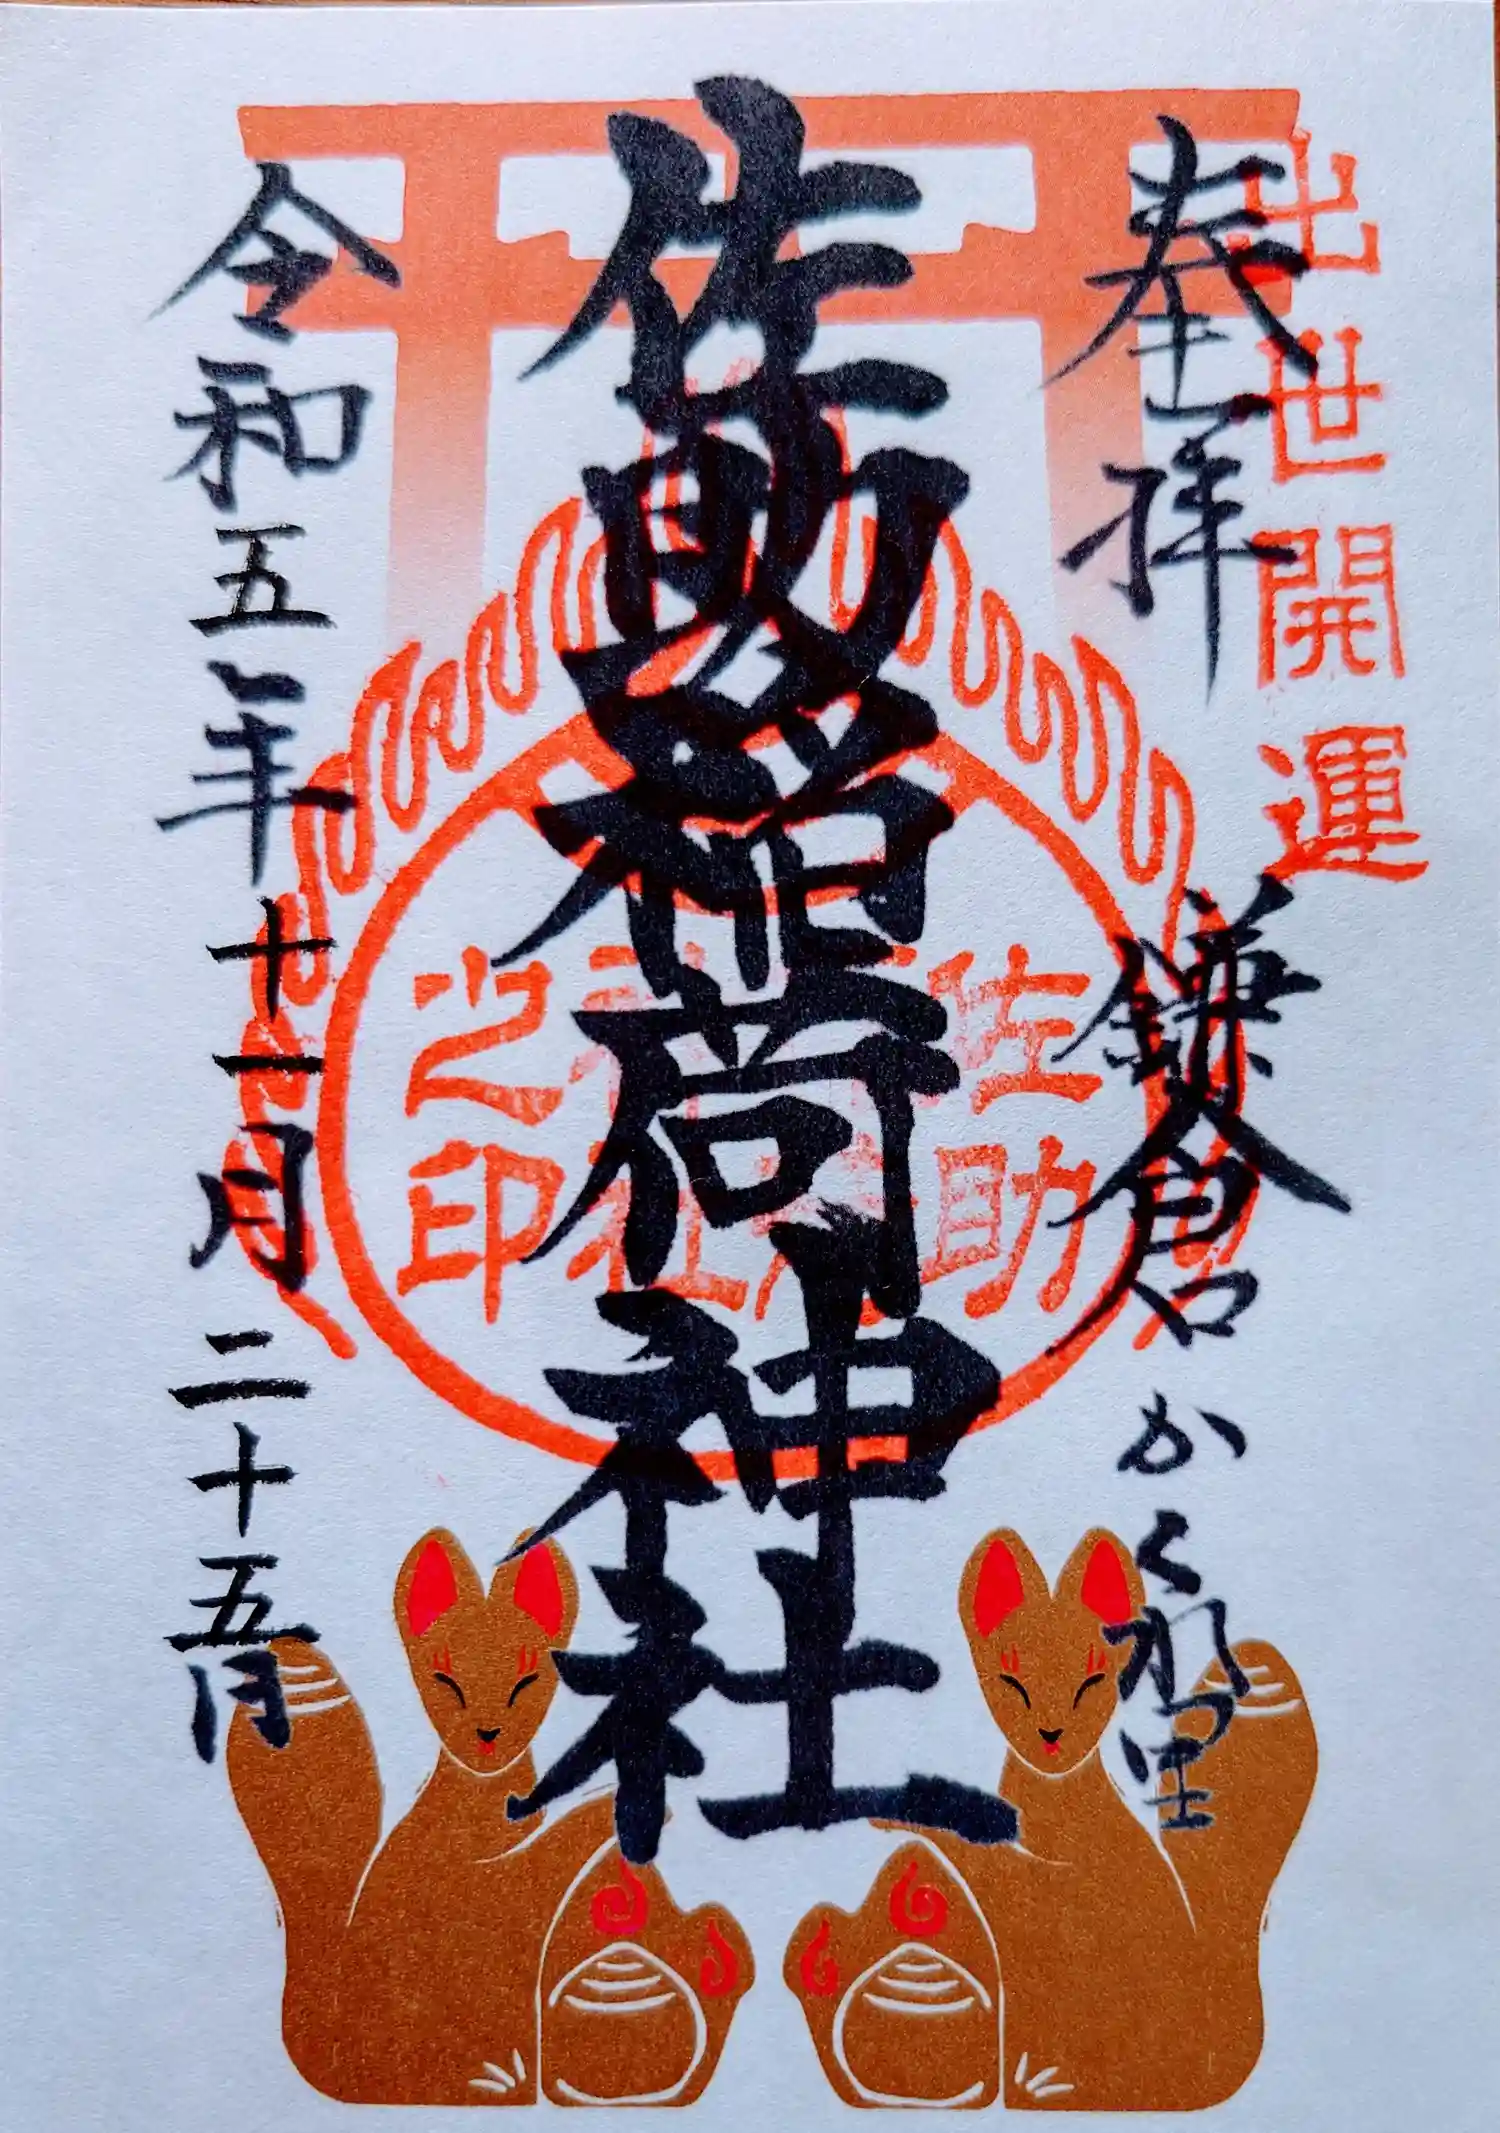 出世開運
奉拝 鎌倉かくれ里
佐助稲荷神社
佐助
神社
之印
令和五年十一月二十五日